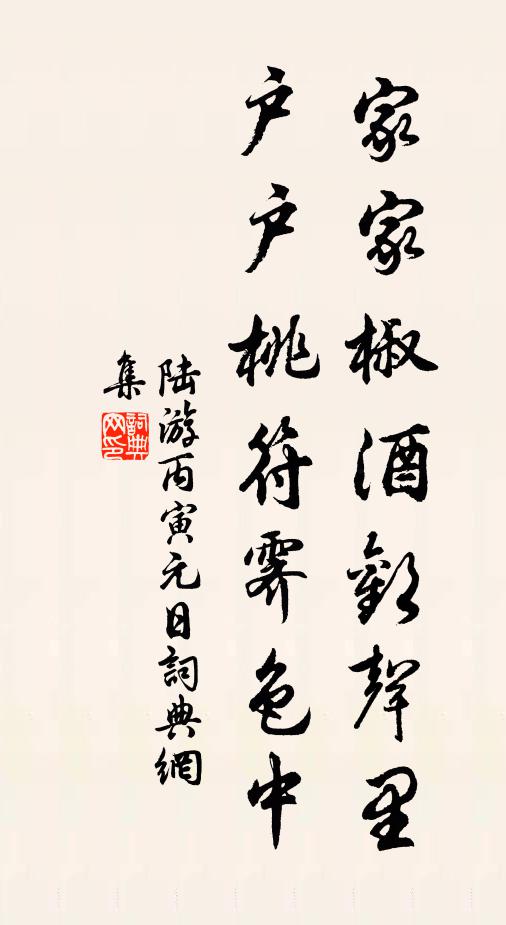 家家椒酒歡聲里
户户桃符霽色中
陆游丙寅元日詞典網
集
詞典网印